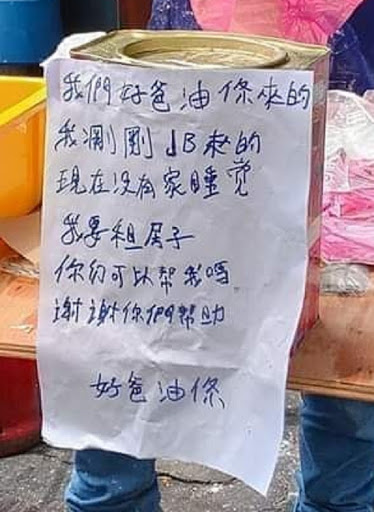 我們好爸油條來的
我剛剛JB來的
現在沒有家睡覺
我要租房子
你们可以帮我嗎
谢謝你們幫助
好爸油條